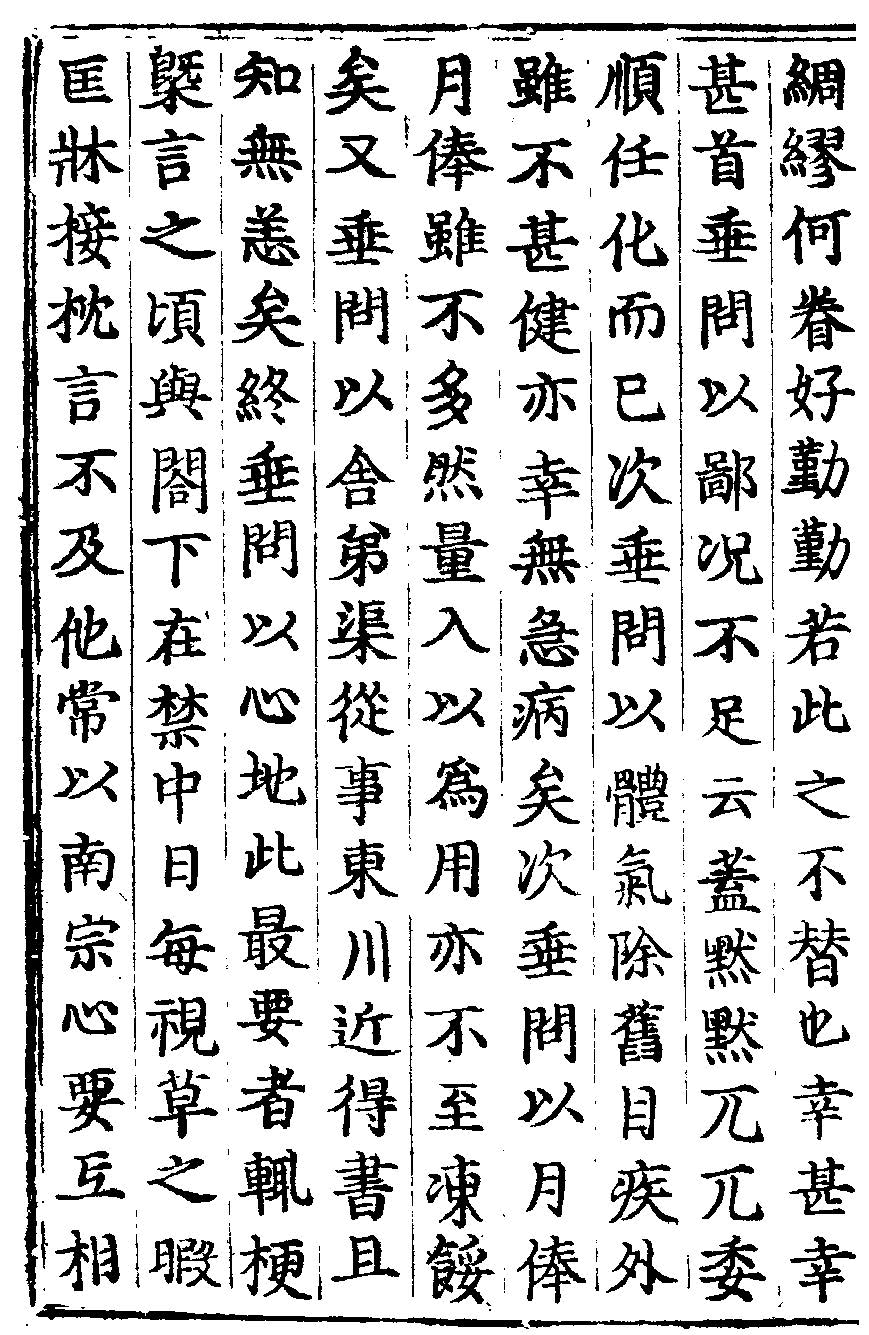 綢繆何眷好勤勤若此之不替也幸甚幸
甚首垂問以鄙况不足云蓋默默兀兀委
順任化而已次垂問以體氣除舊目疾外
雖不甚健亦幸無急病矣次垂問以月俸
月俸雖不多然量入以爲用亦不至凍餒
矣又垂問以舍弟渠從事東川近得書且
知無恙矣終垂問以心地此最要者輒梗
槩言之頃與閤下在禁中日每視草之暇
匡牀接枕言不及他常以南宗心要互相